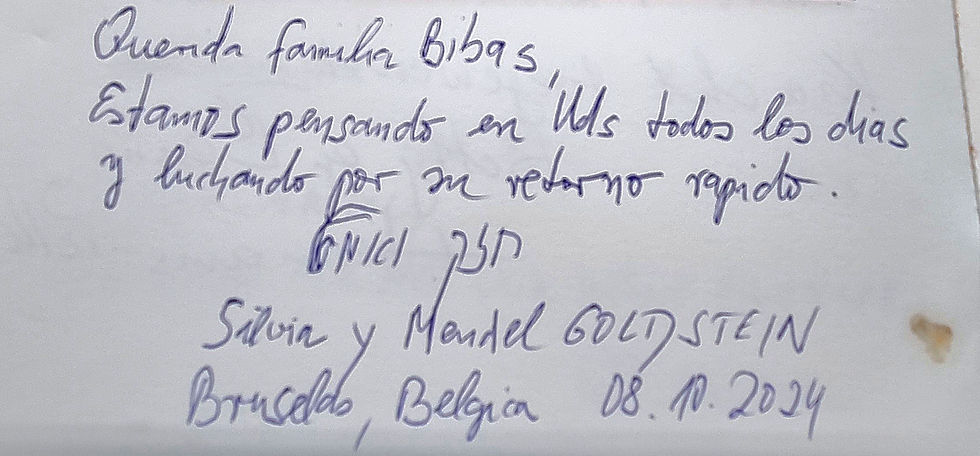 Querida familia Bibas,
Estamos pensando en Uds todos los dias
y luchando por su retorno rapido.
חזק ואמץ
Silvia y Mendel GOLDSTEIN
Bruselas, Belgica 08.10.2024